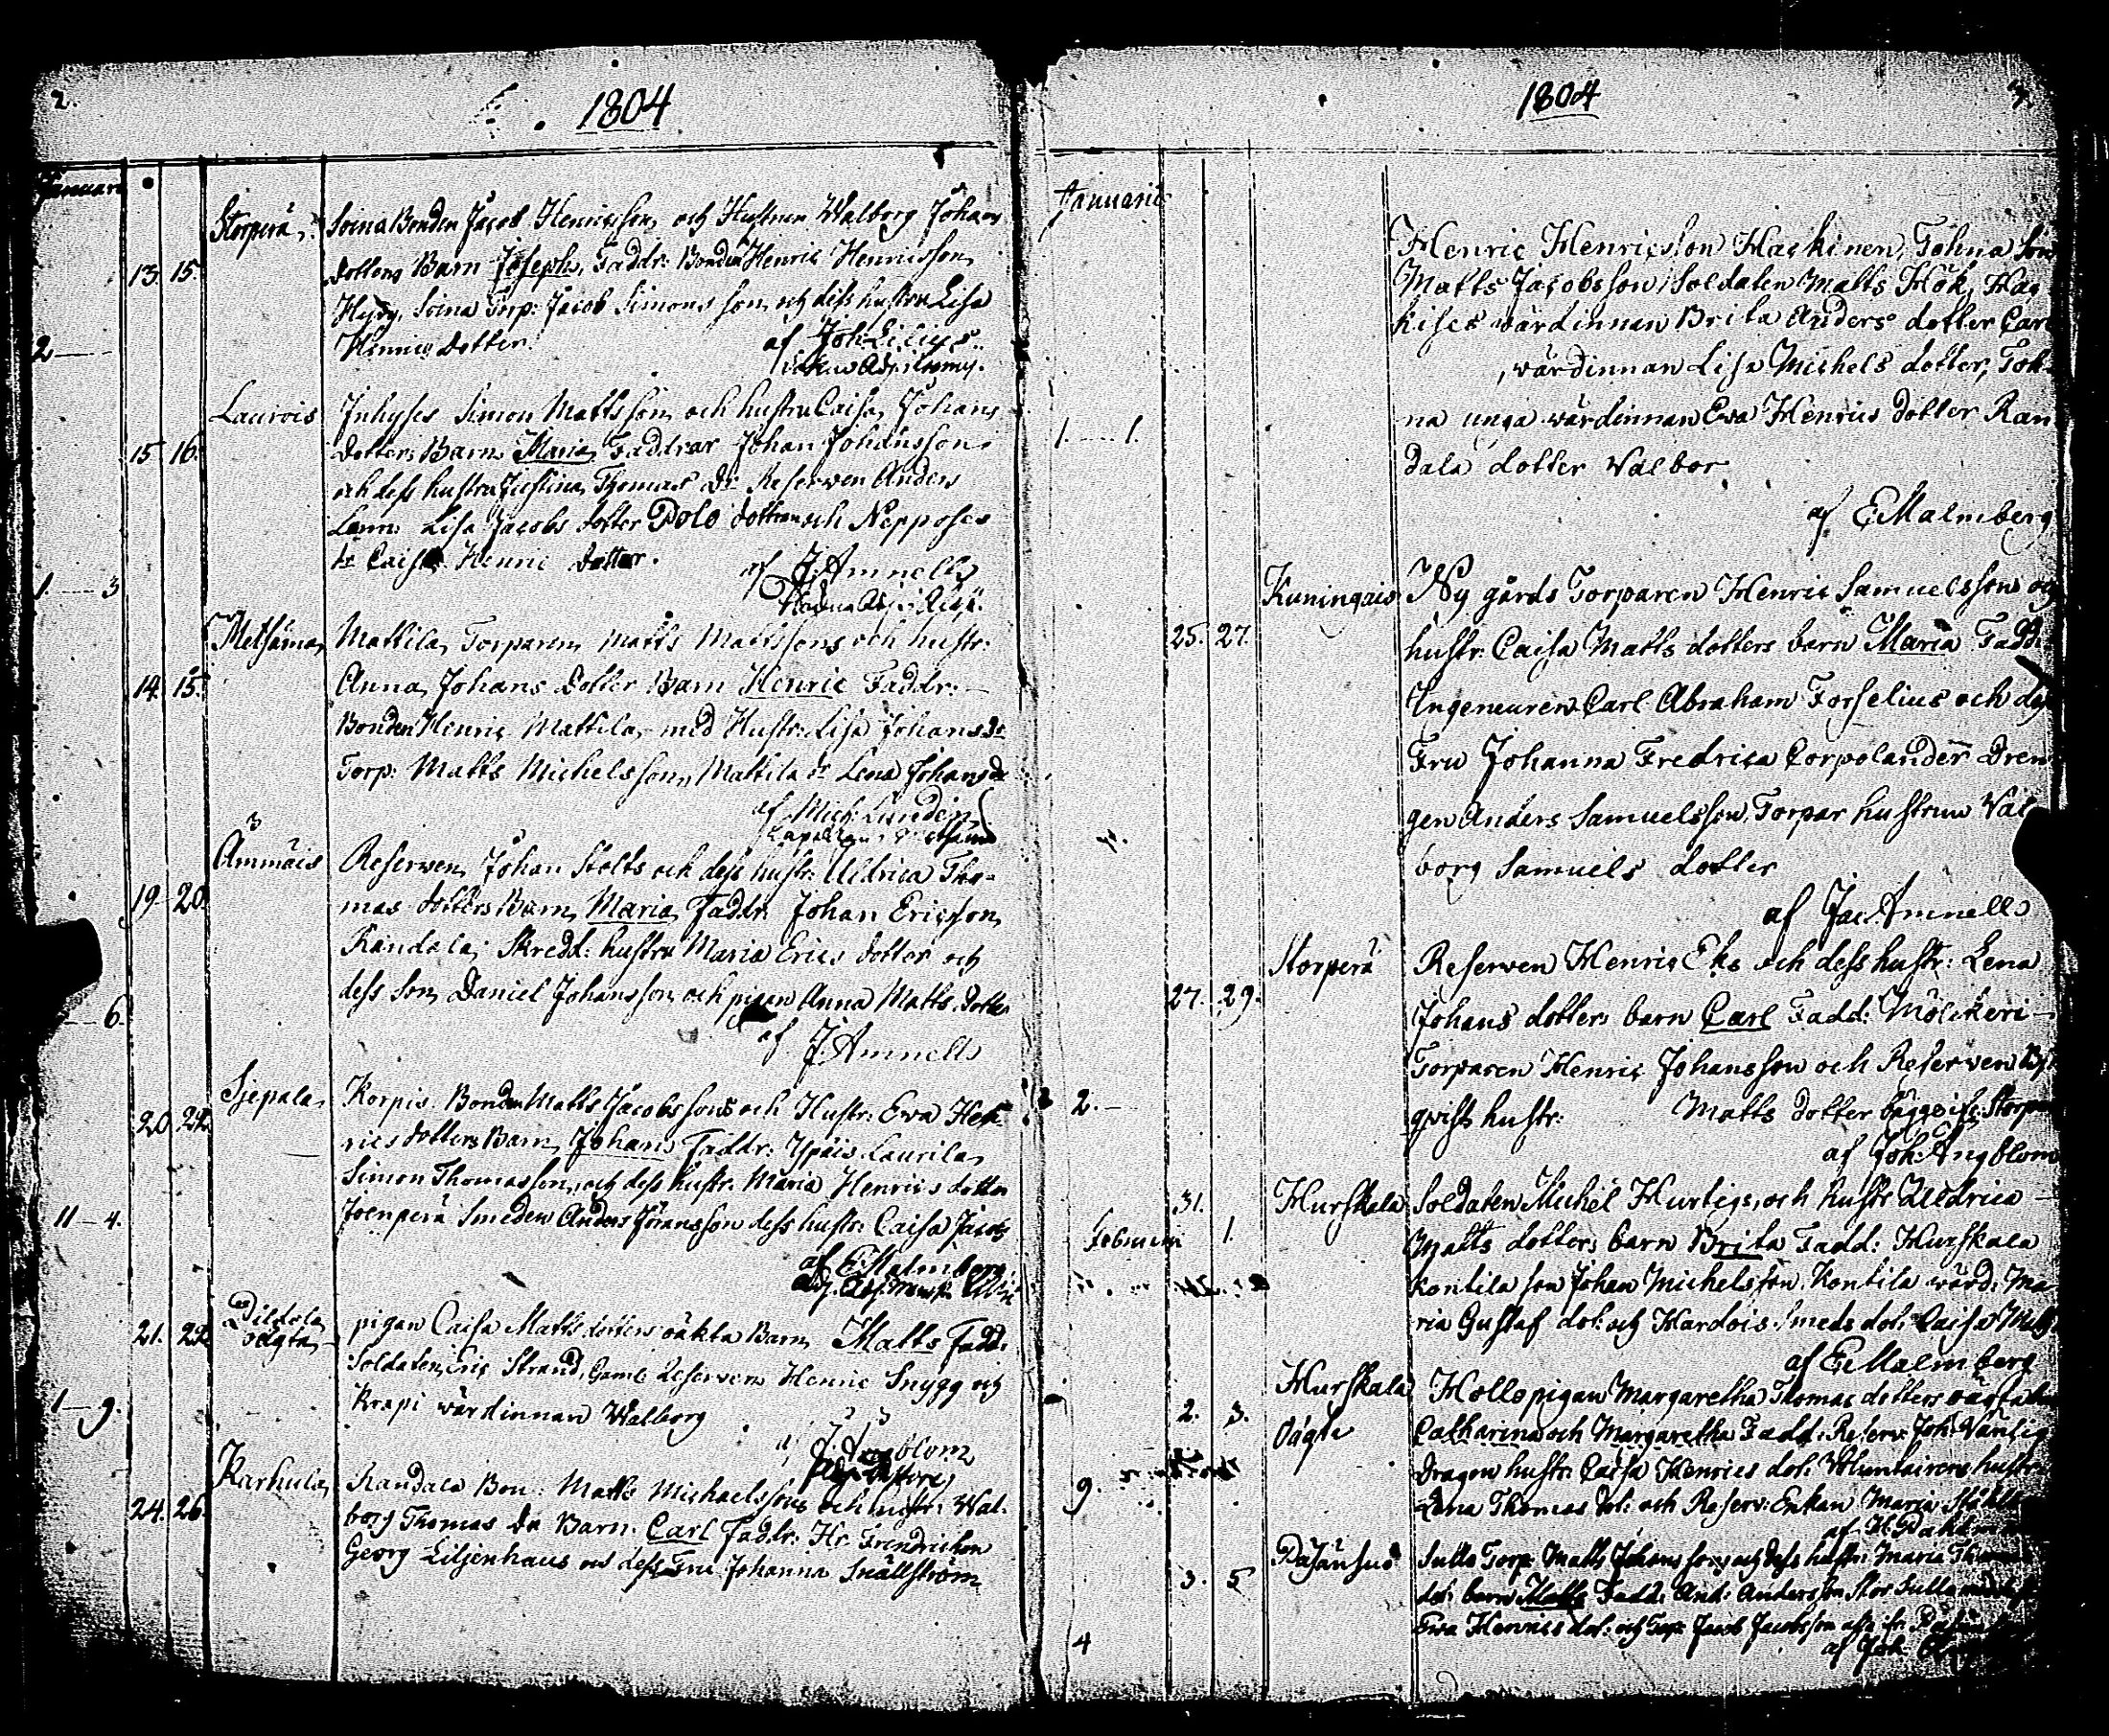 2.
1804
Januari
Storperä,
Soina Bonden Jacob Henricsson och Hustrun Walborg Johans
13. 15.
dotters Barn Joseph, Faddr: Bonden Henric Henricsson
Soina Torp: Jacob Simonsson och dess hustru Lisa
2
Henrics dotter. af Joh: Lilius
Laurois
Inhyses Simon Mattsson och hustru Caisa Johans
15 16.
dotters Barn Maria, Faddrar Johan Johansson
och dess hustru Justina Thomas Dr Reserven Anders
Lisa Jacobs dotter Polo dottren och Nepposes
1 3
dr Caisa Henric dotter. af J: Amnell
Metsäma
Mattila, Torparen Matts Mattssons och hustr:
14. 15.
Anna Johans dotter Barn Henric Faddr:
Bonden Henric Mattila, med Hustr: Lisa Johans dr
Torp: Matts Michelsson, Mattila dr Lena Johans dr
af Mich: Lundén
Ammäis
Reserven Johan Stolts och dess hustr: Uldrica Tho-
19 20.
mas dotters Barn, Maria, Faddr: Johan Ericsson
Randala, Skredd: hustru Maria Erics dotter och
dess son Daniel Johansson och pigan Anna Matts dotter
6.
af J: Amnell
Sjepala
Korpis Bonden Matts Jacobssons och Hustr: Ewa Hen-
20 22.
rics dotters Barn, Johan, Faddr: Ypäis Laurila
Simon Thomasson, och dess hustr: Maria Henrics dotter
11 4.
Joenperä Smeden Anders Göransson dess hustr: Caisa Jacobs
af E: Malmberg
oägta
21. 22.
pigan Caisa Matts dotters oäkta Barn, Matts Fadd:
Soldaten Eric Strand, Gaml: Reserven Henric Snygg och
1 9.
Krapi wärdinnan Walborg
af J: Ångblom
Karhula
Randala Bon: Matts Michaelssons och hustr: Wal-
24. 26.
borg Thomas dr Barn. Carl Faddr: Hr
Georg Liljenhaus och dess Fru Johanna Snällström
1804
3.
Januarii
Henric Henricsson Hackinen, Tohna son
Matts Jacobsson, Soldaten Matts Hök, Hac
kises wärdinnan Brita Anders dotter
, wärdinnan Lisa Michels dotter, Toh-
1. 1.
na unga wärdinnan Ewa Henrics dotter Ran
dala dotter Walbor
af E Malmberg
Kuningais
Ny gårds Torparen Henric Samuelssons och
25. 27.
hustr: Caisa Matts dotters barn Maria Fadd:
Ingeneuren Carl Abraham Forselius och dess
Fru Johanna Fredrica Corpolander Dren
gen Anders Samuelsson, Torpar hustrun Val
borg Samuels dotter
af Jac: Amnell
Storperä
Reserven Henric Ek och dess hustr: Lena
27. 29.
Johans dotters barn Carl Fadd: Mölckeri
Torparen Henric Johansson och Reserven
2.
qvist hustr: Matts dotter
af Joh: Ångblom
Hurskala
31.
Soldaten Michel Hurtigs, och hustr Uldrica
Februari 1.
Matts dotters barn Brita Fadd: Hurskala
Kontila son Johan Michelsson, Kontila wärd: Ma
ria Gustaf dot: och Kardois Smeds dot: Caisa
af E Malmberg
Hurskala
Hollo pigan Margaretha Thomas dotters oägta
2. 3.
Oägta
Catharina och Margaretha Fadd: Reserv: Joh:
Dragon hustr: Caisa Henrics dot: Volontairens hustru
9.
Lena Thomas dot: och Reserv: Enkan Maria
af
3. 5
Sullo Torp: Matts Johanssons och dess hustr: Maria
dot: barn Matts Fadd: And: Andersson Stor Sullo
Ewa Henrics dot: och Torp: Jacob Jacobsson
4
af Joh: